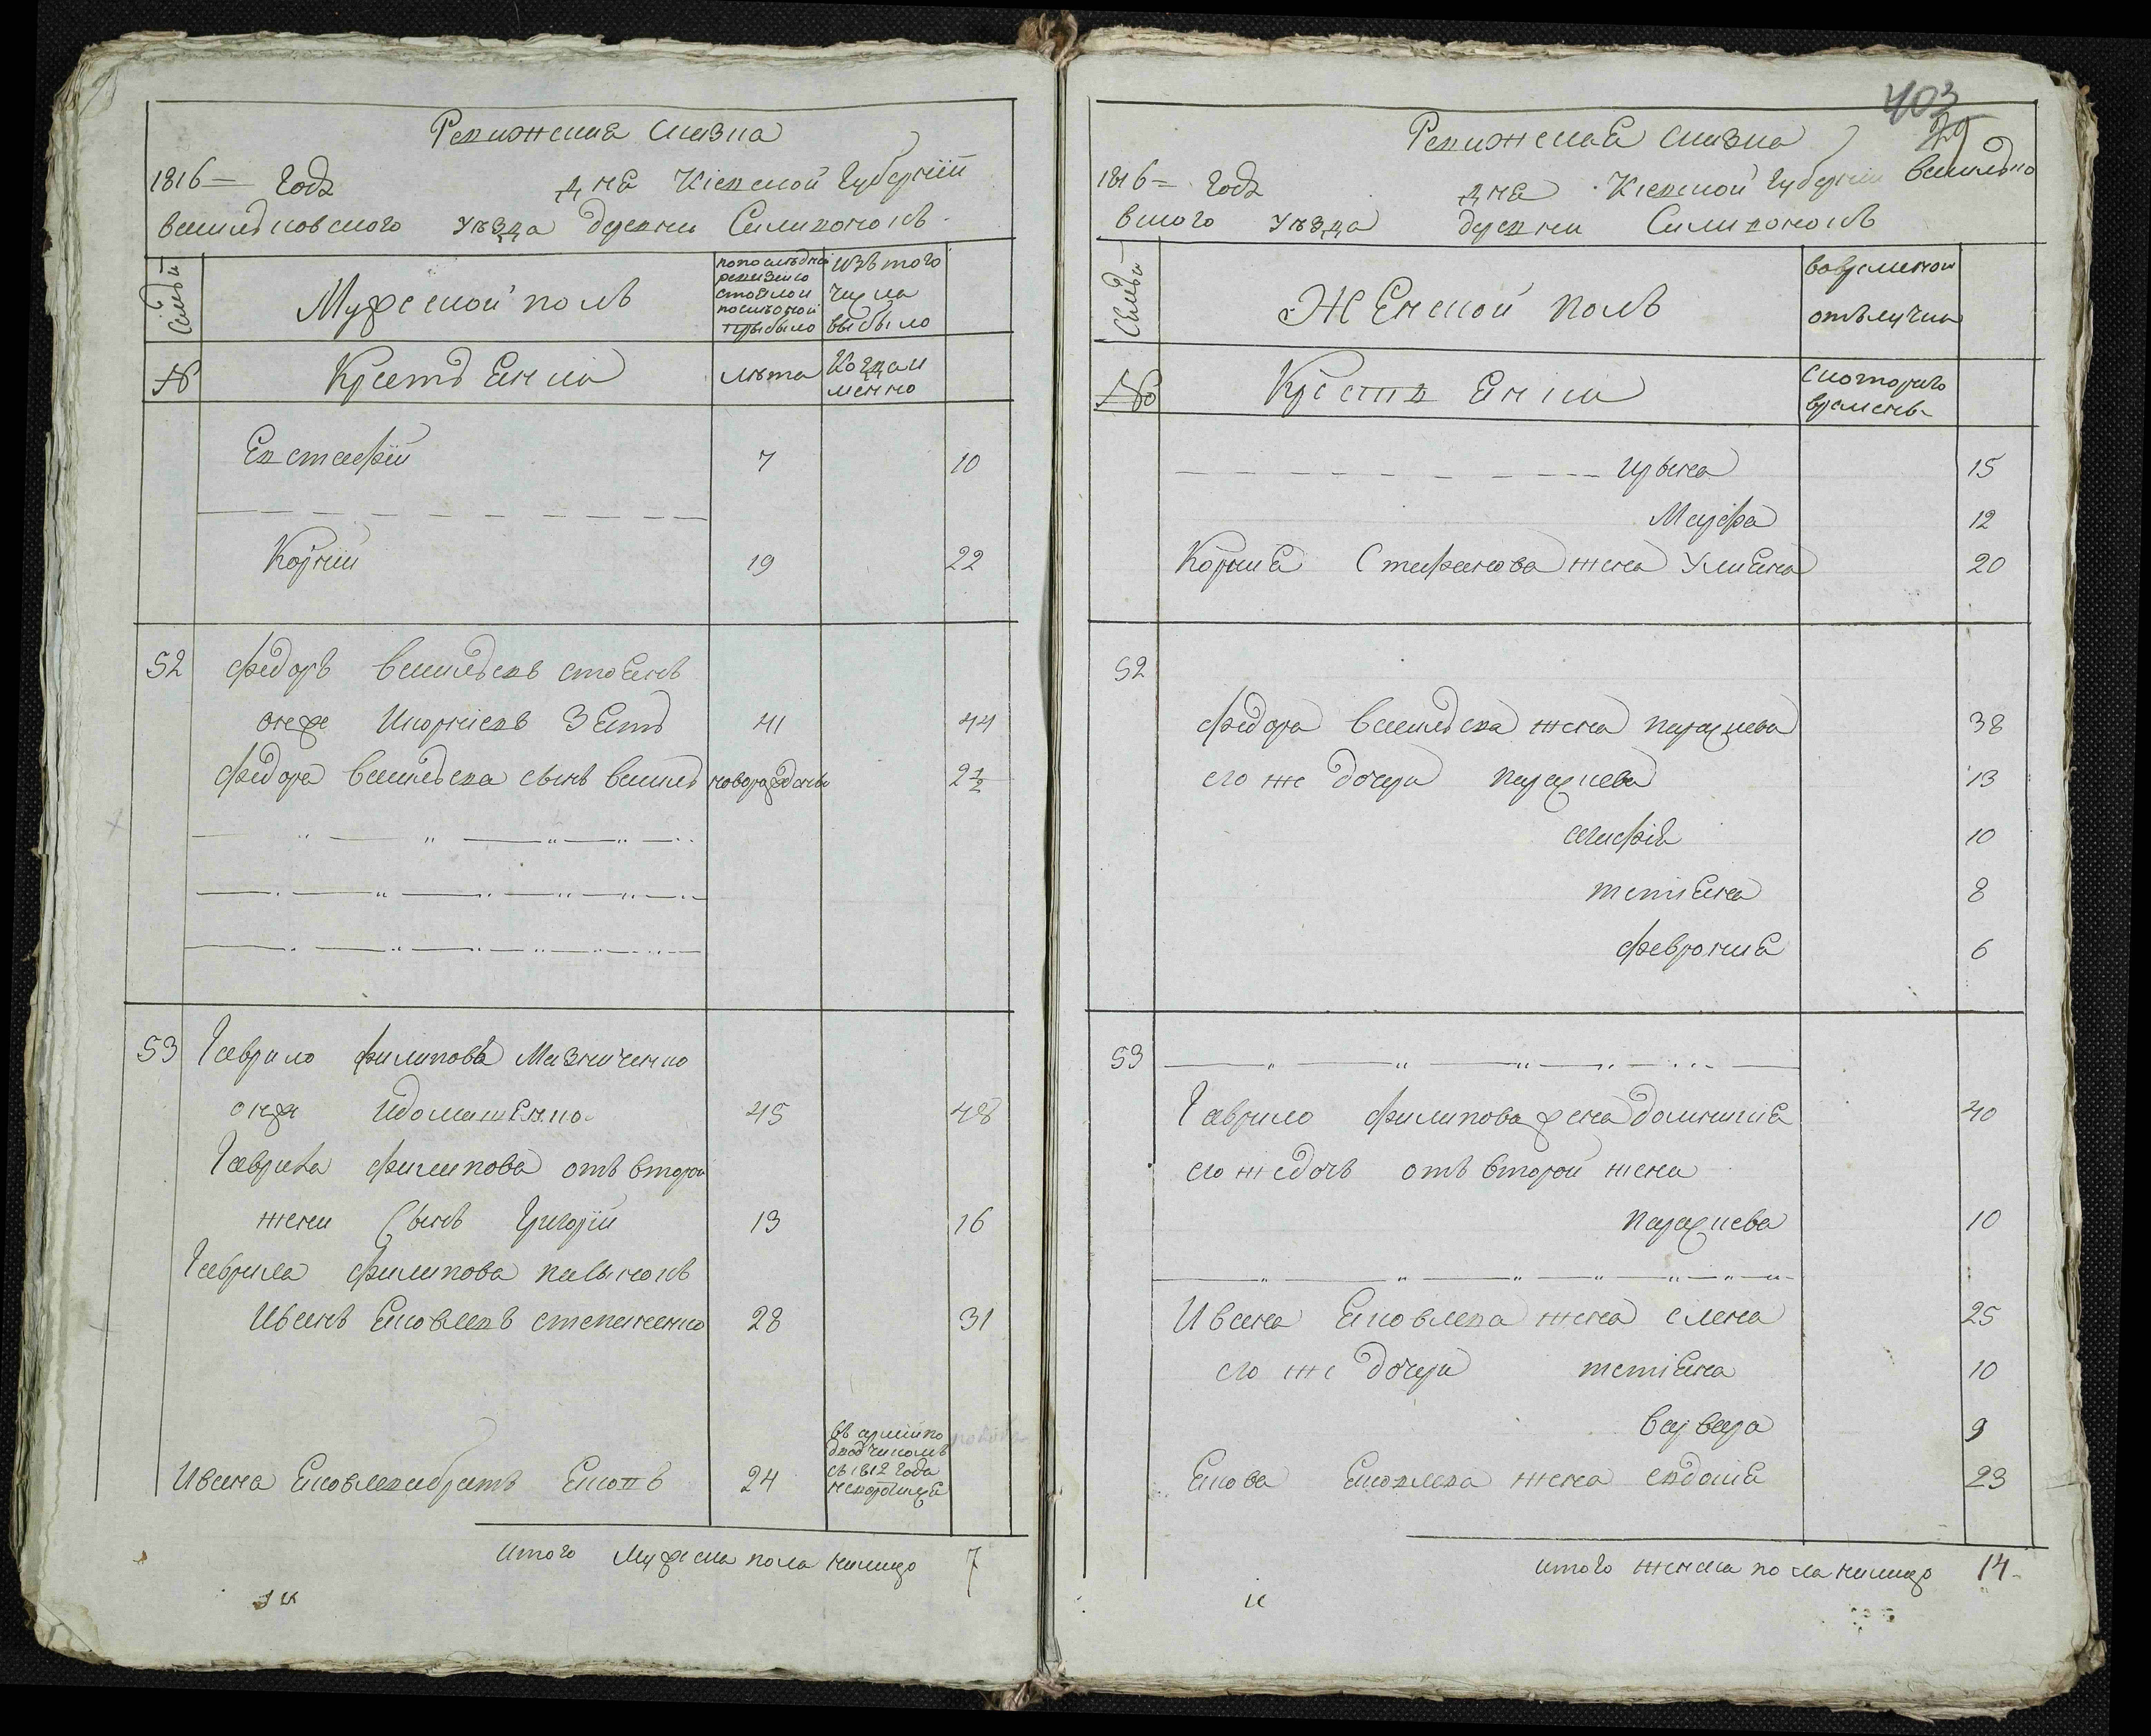 Ревижская сказка
1816 = года дня Кіевской Губерніи
Васильковского уезда деревни Саливонокъ
Семьи
Мужеской полъ
по последней
ревизіи
состояло и
после оной
прибыло
изъ того
числа
выбыло
№
Крестьяния
лета
Когда и
менно
Евстафій 7 10
Корній 19 22
52 Федоръ Васильевъ стоянъ
онже Икорніевъ Зять 41 44
Федора Васильева сынъ Василь новорожденъ 2½
53 Гаврило Филипова Мазниченко
онже Идомашенко 45 48
Гаврила Филипова отъ второй
жени Сынъ Григорій 13 16
Гаврила Филипова пасынокъ
Иванъ Яковлевъ степаненко 28 31
въ арміи по
гонщикомъ
съ 1812 Года
Ивана Яковлева братъ Яковъ 24
итого Мужеска пола налицо 7
403
29
Ревижская сказка
1816 = года дня Кіевской Губерніи Василько
вского уезда деревни Саливонокъ
Семьи
Женской полъ
вовременои
отълучки
№
Крествяніи
Скоторого
времень
ирына 15
Марфа 12
Корния Стефанова жена Улияна 20
52
Федора Васильева жена параскева 38
его же дочери параскева 13
агафія 10
тетіяна 8
феврония 6
53
Гаврило Филипова жена домникия 40
его же дочь отъ второй жена
параскева 10
Ивана Яковлева жена елена 25
его же дочери тетіяна 10
варвара 9
Якова Яковлева жена евдокия 23
итого женска пола налицо 14